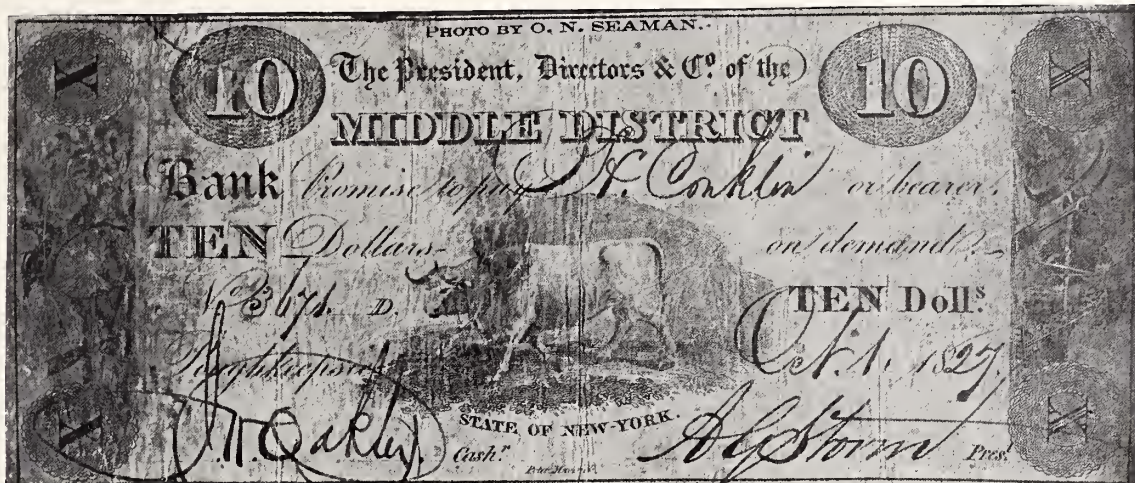 PHOTO BY O. N. SEAMAN.
X 10 The President, Directors & Co. of the 10 X
MIDDLE DISTRICT
Bank Promise to pay Conklin or bearer,
TEN Dollars on demand
No. D. TEN Dolls.
Poughkeepsie Oct. 1. 1827.
STATE OF NEW-YORK.
X J. W. Oakley. Cashr. A G Storm Prest. X